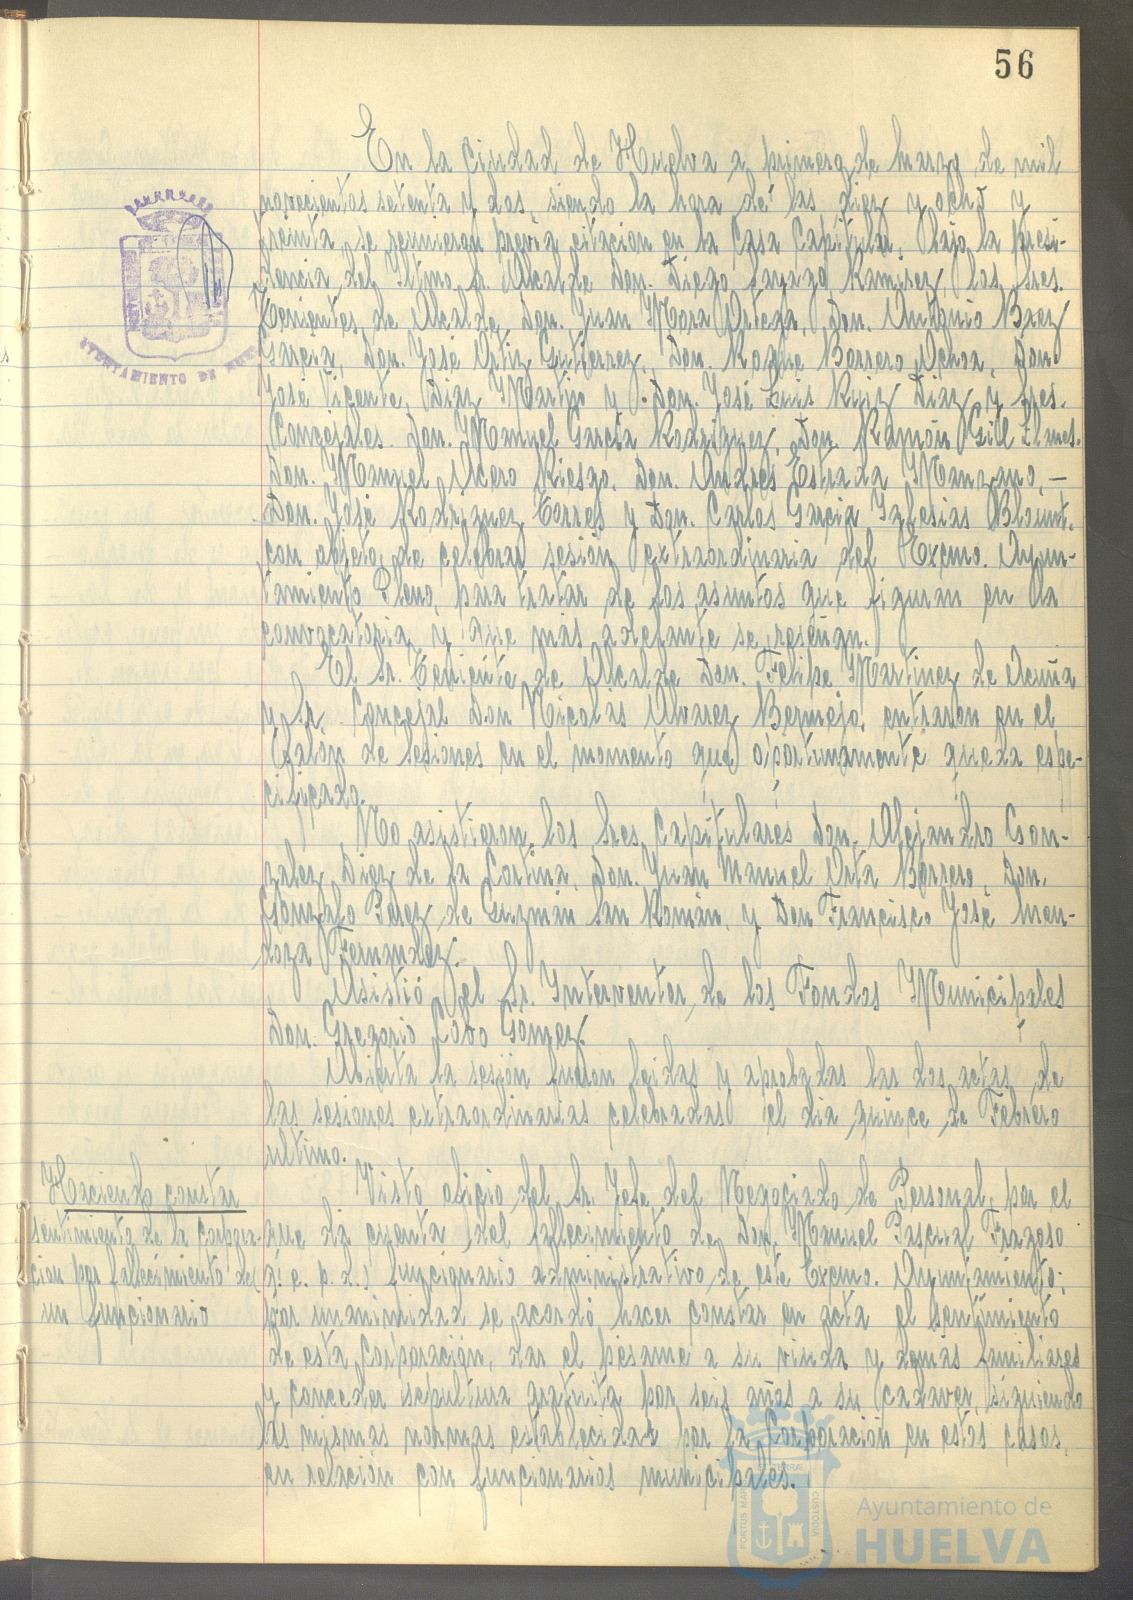 56
En la Ciudad de Huelva a primero de marzo de mil
novecientos setenta y dos, siendo la hora de las diez y ocho y
treinta se reunieron previa citación en la Casa Capitular, bajo la Presi-
dencia del Iltmo. Sr. Alcalde Don. Diego Sayago Ramirez, los Sres.
Tenientes de Alcalde Don. Juan Mora Ortega, Don. Antonio Baez
Garcia, Don. José Ortiz Gutierrez, Don. Roque Borrero Ochoa, Don
José Vicente Diaz Martin y Don. José Luis Ruiz Diaz y Sres.
Concejales Don. Manuel García Rodriguez, Don. Ramón Gill Llanes.
Don. Manuel Acero Riesgo, Don. Andrés Estrada Manzano, —
Don. José Rodriguez Torres y Don. Carlos Garcia Iglesias Blount.
con objeto de celebrar sesión extraordinaria del Excmo. Ayun-
tamiento Pleno, para tratar de los asuntos que figuran en la
convocatoria y que más adelante se reseñan.
El Sr. Teniente de Alcalde Don. Felipe Martinez de Acuña
y Sr. Concejal Don Nicolás Alvarez Bermejo, entraron en el
Salón de Sesiones en el momento que oportunamente queda espe-
cificado.
No asistieron los Sres. Capitulares Don. Alejandro Gon-
zalez Diez de la Cortina, Don. Juan Manuel Orta Borrero, Don.
Gonzalo Perez de Guzmán San Román, y Don Francisco José Men-
doza Fernandez.
Asistió el Sr. Interventor de los Fondos Municipales
Don. Gregorio Cobo Gomez.
Abierta la sesión fueron leidas y aprobadas las dos actas de
las sesiones extraordinarias celebradas el dia quince de Febrero
ultimo.
Haciendo constar
sentimiento de la Corpora-
cion por fallecimiento de
un funcionario
Visto oficio del Sr. Jefe del Negociado de Personal, por el
que dá cuenta del fallecimiento de Don. Manuel Pascual Fragoso
q. e. p. d.) funcionario administrativo de este Excmo. Ayuntamiento;
por unanimidad se acordó hacer constar en acta el sentimiento
de esta Corporación, dar el pésame a su viuda y demás familiares
y conceder sepultura gratuita por seis años a su cadaver, siguiendo
las mismas normas establecidas por la Corporación en estos casos,
en relación con funcionarios municipales.
AYUNTAMIENTO DE
PORTUS MARIS
TERRÆ CUSTODIA
Ayuntamiento de
HUELVA